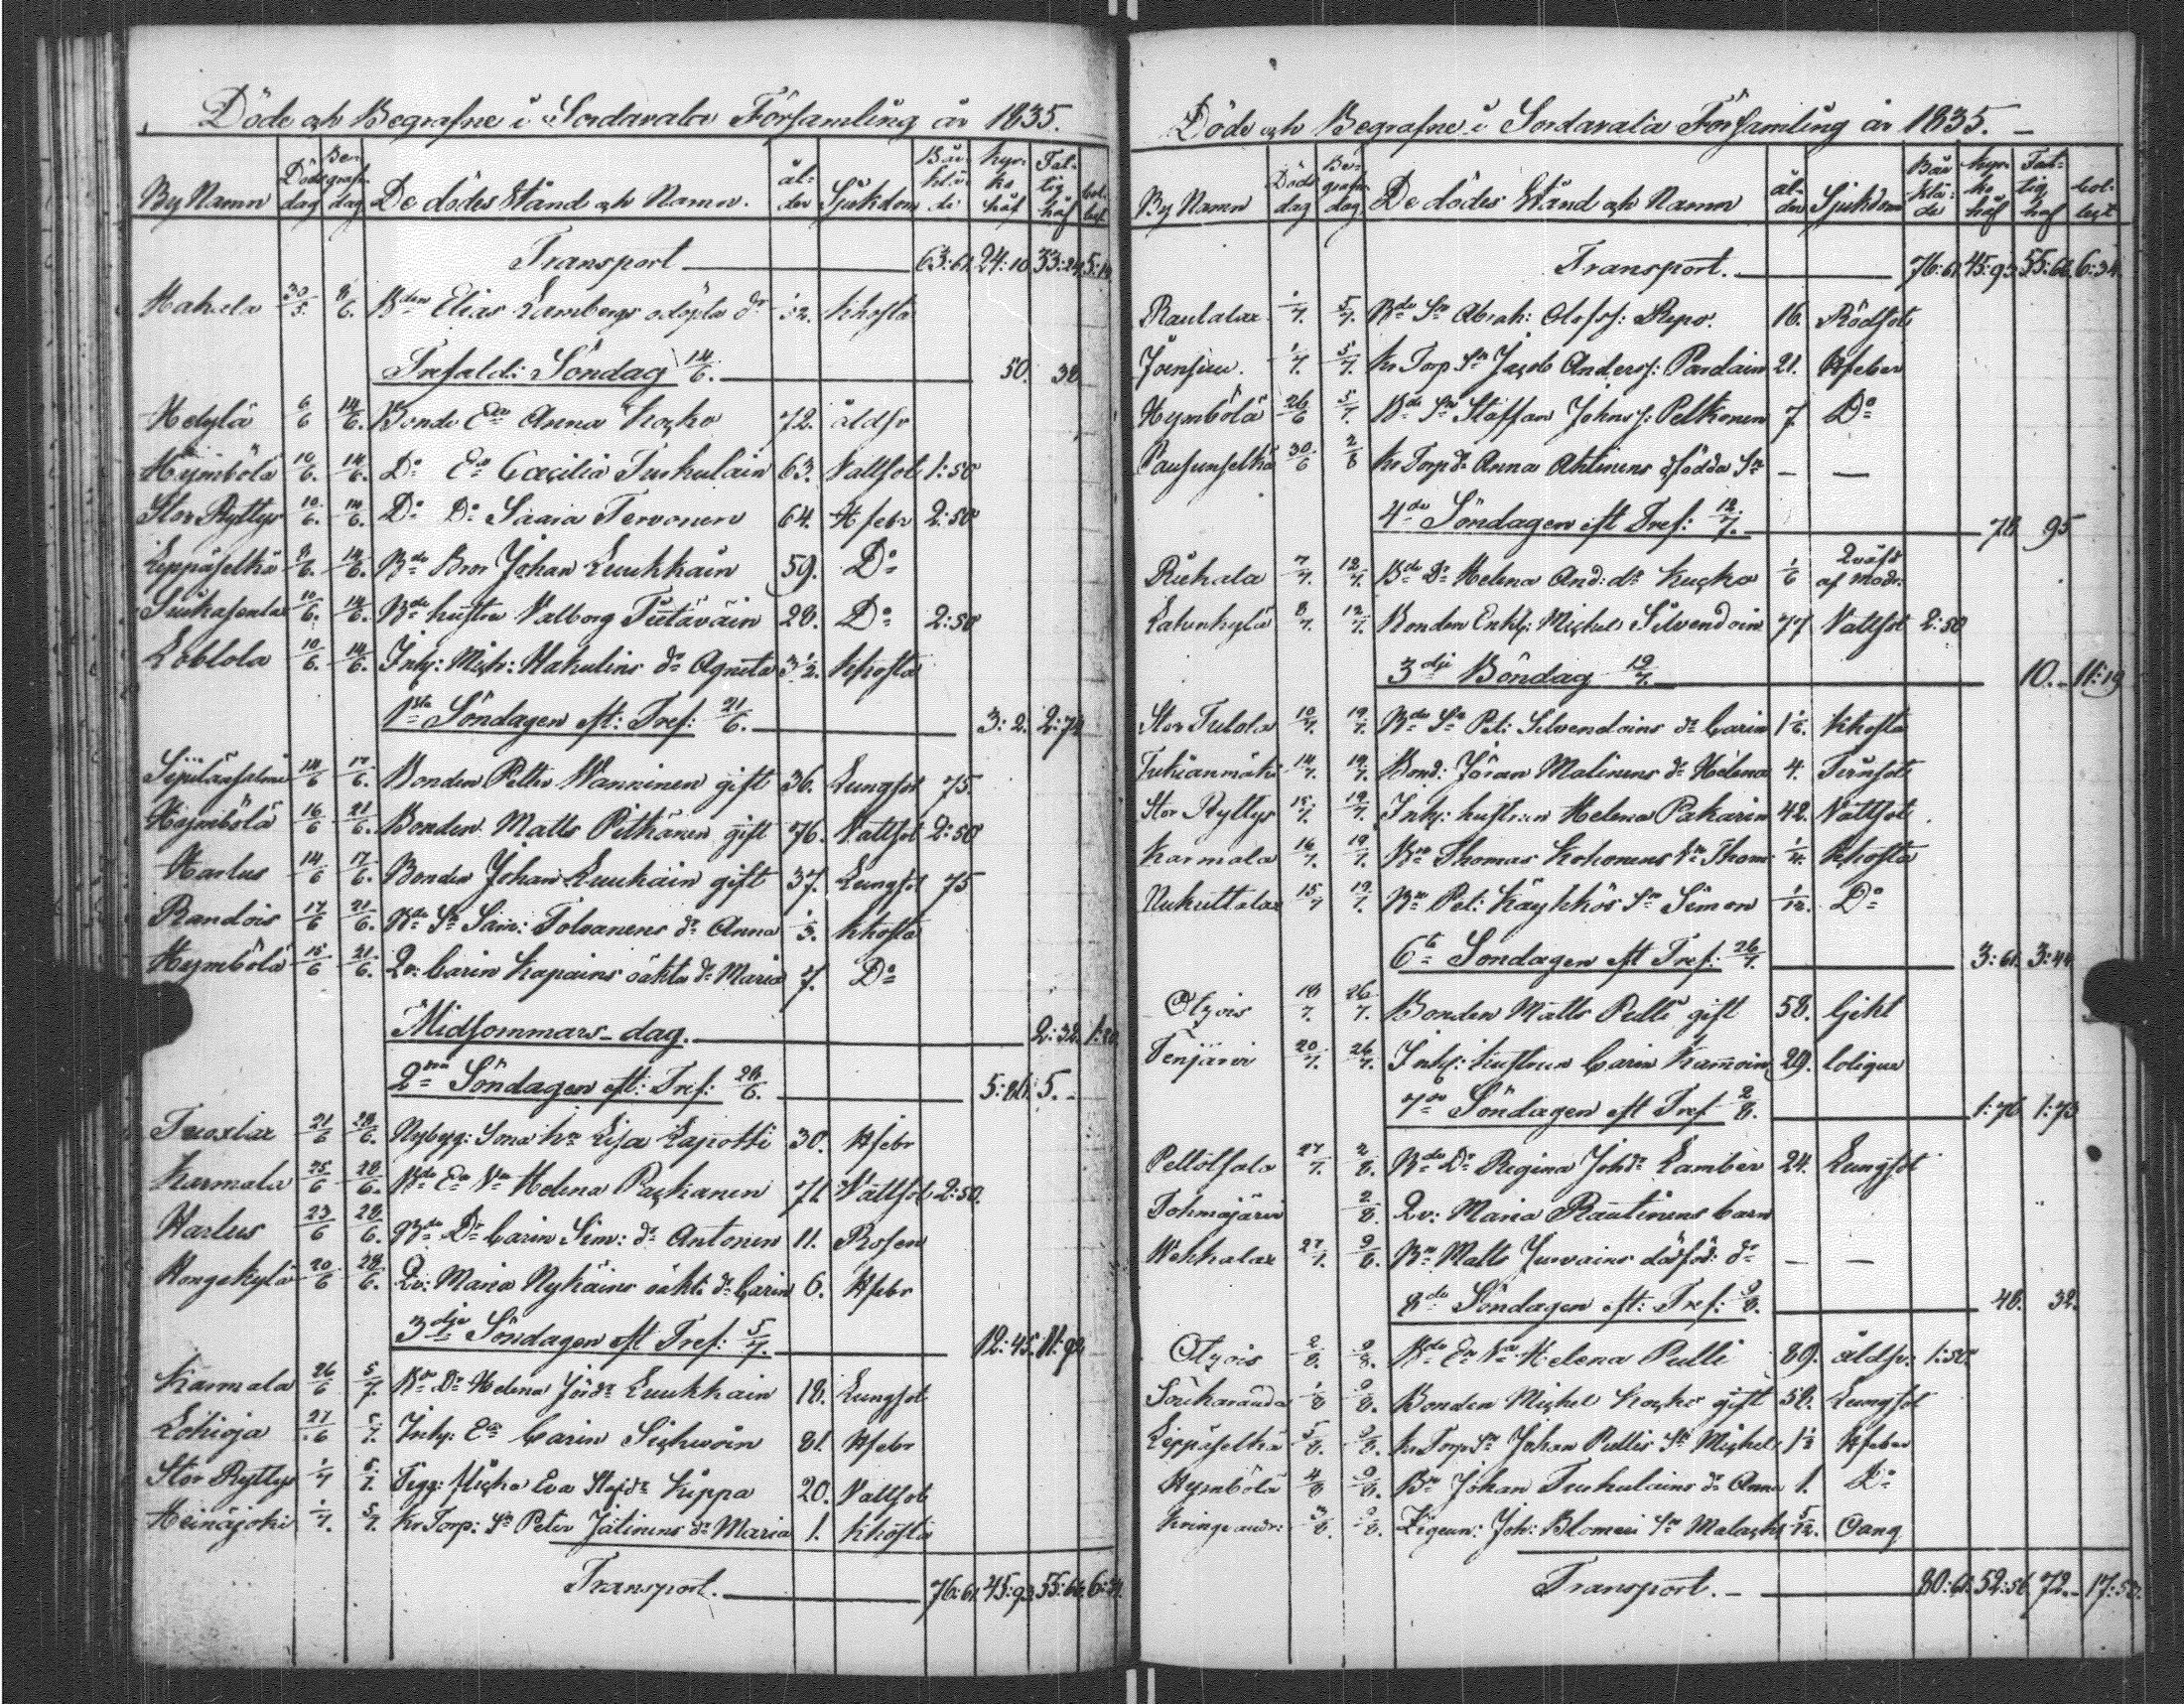 Döde och Begrafne i Sordavala Församling år 1835.
By Namn Döds dag Begrafn. dag De dödes Stånd och Namn. ålder Sjukdom Bår kläde kyrko håf Fattig håf coll:
Transport 63:61. 24:10 33:24 5:14
Hakala 30/5. 8/6. Bden Elias Lambergs odöpta dr khosta
Trefald: Söndag 14/6. 50. 38
Helylä 6/6 14/6. Bonde Ea Anna Kocko 72. åldr
Hymbölä 10/6. 14/6. Do Ea Cæcilia Turkulain 63. Vattsot 1:50
Stor Ryttys 10/6. 14/6. Do Do Saara Tervonen 64. Hfebr 2:50
Leppäselkä 8/6. 14/6. Bde Bror Johan Luukkain 59. Do
10/6. 14/6. Bde hustru Valborg Tietäväin 28. Do 2:50
10/6. 14/6. Inhs: Mich: Hakulins dr Agneta 3 1/2. khosta
1sta Söndagen eft: Tref: 21/6. 3:2. 2:74
14/6 17/6. Bonden Petter Wanninen gift 36. Lungsot 75.
Hymbölä 16/6 21/6. Bonden Matts Pitkänen gift 76. Vattsot 2:50
Harlus 14/6 17/6. Bonden Johan Luukain gift 37. Lungsot 75
Randois 17/6 21/6. Bde Sn Sam: Tolvanens dr Anna 1/3. khosta
Hymbölä 15/6 21/6. Qv: Carin Kapains oäkta dr Maria 7. Do
Midsommars-dag. 2:32. 1:20
2dra Söndagen eft: Tref: 28/6. 5:86. 5.-
Tuoxlax 21/6 28/6. Nybygg: Sona hu Lisa Lapotti 30. Hfebr
Karmala 25/6 28/6. Bde Ea Helena Packanen 71 Vattsot 2:50.
Harlus 23/6 28/6. Bde Dr Carin Sim: dr Antonen 11. Rosen
Kongakylä 20/6 28/6. Qv: Maria Nykäins oäkta dr Carin 6. Hfebr
3dje Söndagen eft Tref: 5/7. 12:45. 11:92
Karmala 26/6 5/7. Bde Dr Helena Jör:dr Luukkain 18. Lungsot
Lohioja 27/6 5/7. Inhs: Ea Carin Sichvoin 81. Hfebr
Stor Ryttys 1/7 5/7. Tigg: flicka Eva Staf:dr Kuppa 20. Vattsot
Heinäjoki 1/7. 5/7. Kr Torp: Sn Peter Jälinens dr Maria 1. khosta
Transport. 76:61. 45:93. 55:66. 6:34.
Döde och Begrafne i Sordavala Församling år 1835.
By Namn Döds dag Begrafn dag De dödes Stånd och Namn ålder Sjukdom Bår kläde kyrko håf Fattig håf collect
Transport. 76:61. 45:93 55:66. 6:34.
Rautalax 1/7. 5/7. Bde Sn Abrah: Olofss: Repo. 16. Rödsot
Joensuu. 1/7. 5/7. Kr Torp Sn Jacob Anderss: Pardain 21. Hfeber
Hymbölä 26/6 5/7. Bde Sn Staffan Johns s: Peltonen 7. Do
Pausunselkä 30/6 2/8 Kr Torp dr Anna Ahtinens dfödda Sn — —
4de Söndagen eft Tref: 12/7. 78. 95
Riekala 7/7. 12/7. Bde Dr Helena And: dr Kucko 1/6 Qväfd af modr.
Lahenkylä 8/7. 12/7. Bonden Enkl: Michel Silvendoin 77 Vattsot 2:50
3dje Böndag 19/7. 10.- 11:19
Stor Tulola 10/7 19/7. Bde Sn Pet: Silvendoins dr Carin 1 1/6. khosta
14/7. 19/7. Bond: Jöran Malinens dr Helena 4. Tärsot
Stor Ryttys 15/7. 19/7. Inhs: hustrun Helena Pakarin 42. Vattsot
Karmala 16/7. 19/7. Bn Thomas Kohonens Sn Thom: khosta
Nukuttalax 15/7 19/7. Bn Pet: Käyhkös Sn Simon 1/12. Do
6te Söndagen eft Tref: 26/7. 3:61. 3:44
Otsois 18/7. 26/7. Bonden Matts Pulli gift 58. Gikt
Tenjärvi 20/7. 26/7. Inhs: hustrun Carin 29. Colique
7de Söndagen eft Tref 2/8. 1:76. 1:73
Pellotsalo 27/7. 2/8. Bde Dr Regina Joh:dr Lamber 24. Lungsot
Tohmajärvi 2/8. Qv: Maria Rautinens barn
Wehkalax 27/7. 9/8. Bn Matts Jurvains dödföd: dr — —
8de Söndagen eft: Tref: 9/8. 48. 32.
Otsois 2/8. 9/8. Bde Ea Helena Pulli 89. åldr: 1:50.
1/8 9/8. Bonden Michel Kocko gift 58. Lungsot
Leppäselkä 5/8. 9/8. Kr Torp Sn Johan Pullis Sn Michel Hfeber
Hymbölä 4/8 9/8. Bn Johan Turkulains dr Anna 1. Do
3/8. 9/8. Zigeun: Joh: Blomeri Sn Malachi 5/12. Oang
Transport. 80:61. 52:56. 72.- 17:53.